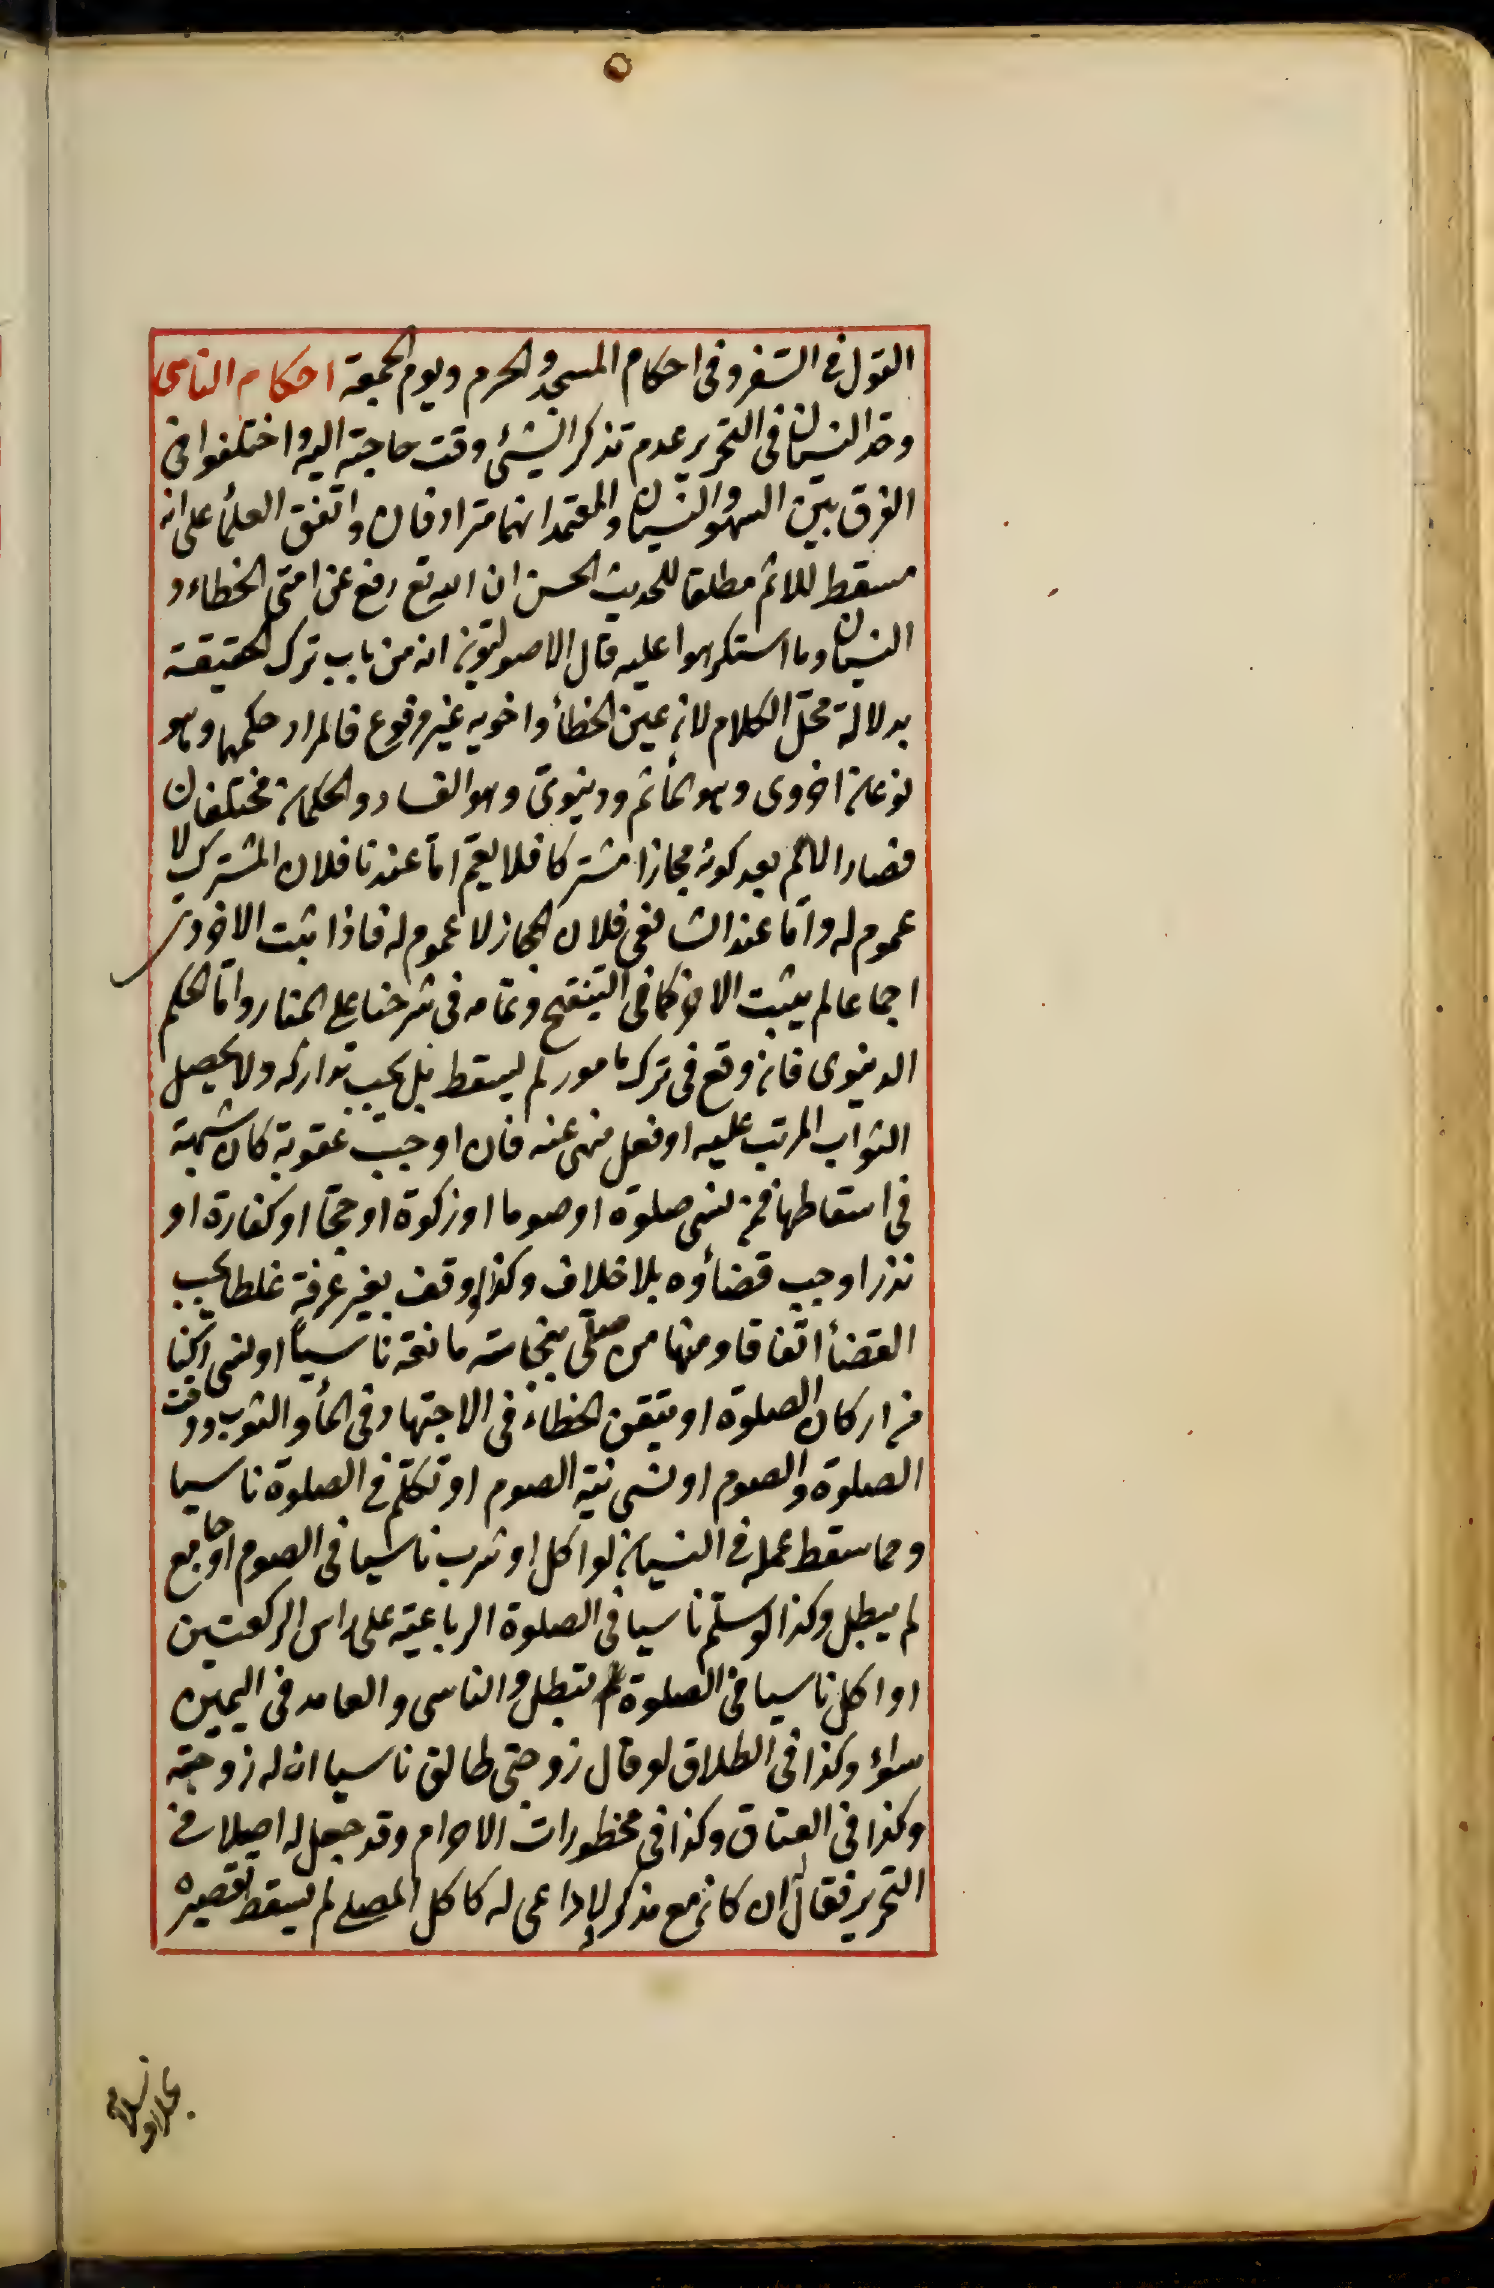 القول فى السفر وفى احكام المسجد والحرم ويوم الجمعة احكام الناسى
وحد النسيان فى التحرير عدم تذكر الشئ وقت حاجته اليه واختلفوا فى
الفرق بين السهو والنسيان والمعتمد انهما مترادفان واتفق العلمأ على انه
مسقط للاثم مطلقا للحديث الحسن ان الله تع رفع عن امتى الخطاء و
النسيان وما استكرهوا عليه قال الاصوليون انه من باب ترك الحقيقة
بدلالة محل الكلام لان عين الخطأ واخويه غير مرفوع فالمراد حكمها وهو
نوعان اخروى وهو المأثم ودنيوى وهو الفساد والحكمان مختلفان
فصار الاثم بعد كونه مجازا مشتركا فلا يعم اما عندنا فلان المشترك لا
عموم له واما عند الشافعى فلان المجاز لا عموم له فاذا ثبت الاخروى
اجماعا لم يثبت الاخر كما فى التنقيح وتمامه فى شرحنا على المنار واما الحكم
الدنيوى فان وقع فى ترك مامور لم يسقط بل يجب تداركه ولا يحصل
الثواب المرتب عليه او فعل منهى عنه فان اوجب عقوبة كان شبهة
فى اسقاطها فمن نسى صلوة او صوما او زكوة او حجا او كفارة او
نذرا وجب قضاؤه بلا خلاف وكذا لو وقف بغير عرفة غلطا يجب
القضأ اتفاقا ومنها من صلى بنجاسة مانعة ناسيا او نسى ركنا
من اركان الصلوة او تيقن الخطاء فى الاجتهاد فى المأ والثوب ووقت
الصلوة والصوم او نسى نية الصوم او تكلم فى الصلوة ناسيا
ومما سقط عمله فى النسيان لو اكل او شرب ناسيا فى الصوم او جامع
لم يبطل وكذا لو سلم ناسيا فى الصلوة الرباعية على راس الركعتين
او اكل ناسيا فى الصلوة لم تبطل والناسى والعامد فى اليمين
سواء وكذا فى الطلاق لو قال زوجتى طالق ناسيا ان له زوجة
وكذا فى العتاق وكذا فى محظورات الاحرام وقد جعل له اصلا فى
التحرير فقال ان كان مع مذكر لا داعى له كاكل المصلى لم يسقط تقصيره
بخلاف سلامه